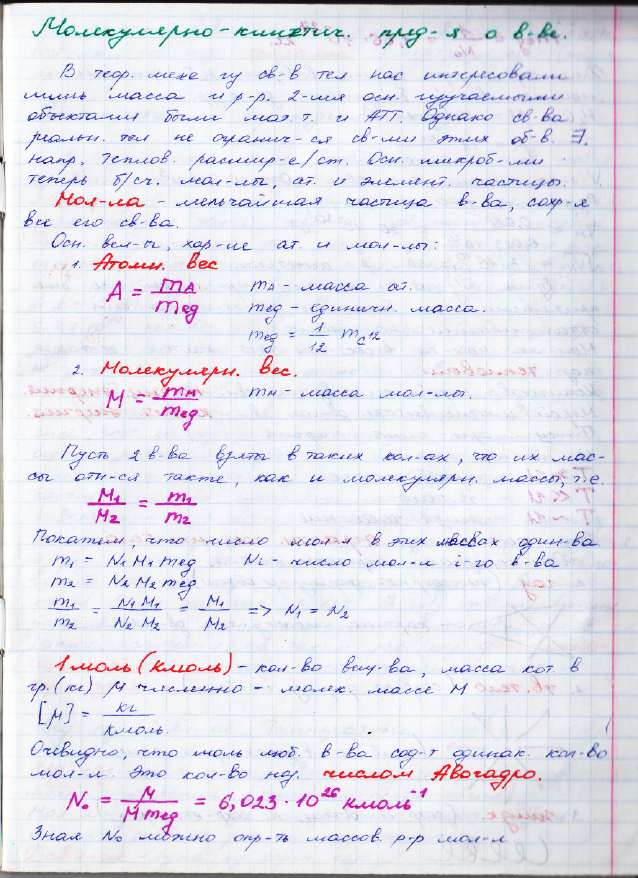 Молекулярно-кинетич. пред-я о в-ве.
В теор. меха гу св-в тел нас интересовали
лишь масса и р-р. 2-мя осн. изучаемыми
объектами были мат. т. и АТТ. Однако св-ва
реальн. тел не огранич-ся св-ми этих об-в. ∃,
напр, теплов. расшир-е/ст. Осн. микроб-ми
теперь б/сч. мол-лы, ат. и элемент. частицы.
Мол-ла - мельчайшая частица в-ва, сохр-я
все его св-ва.
Осн. вел-ы, хар-ие ат. и мол-лы:
1. Атомн. вес
A = mA / mед mA - масса ат.
mед - единичн. масса.
mед = 1/12 mC12
2. Молекулярн. вес.
M = mM / mед mM - масса мол-лы.
Пусть 2 в-ва взяты в таких кол-ах, что их мас-
сы отн-ся также, как и молекулярн. массы, т.е.
M1/M2 = m1/m2
Покажем, что число мол-л в этих массах один-ва
m1 = N1 M1 mед Ni - число мол-л i-го в-ва
m2 = N2 M2 mед
m1/m2 = N1 M1 / N2 M2 = M1/M2 => N1 = N2
1 моль (кмоль) - кол-во вещ-ва, масса кот. в
гр. (кг) μ численно = молек. массе M
[μ] = кг/кмоль.
Очевидно, что моль люб. в-ва сод-т одинак. кол-во
мол-л. Это кол-во наз. числом Авогадро.
N₀ = μ / M mед = 6,023·10²⁶ кмоль⁻¹
Зная N₀ можно опр-ть массов. р-р мол-л